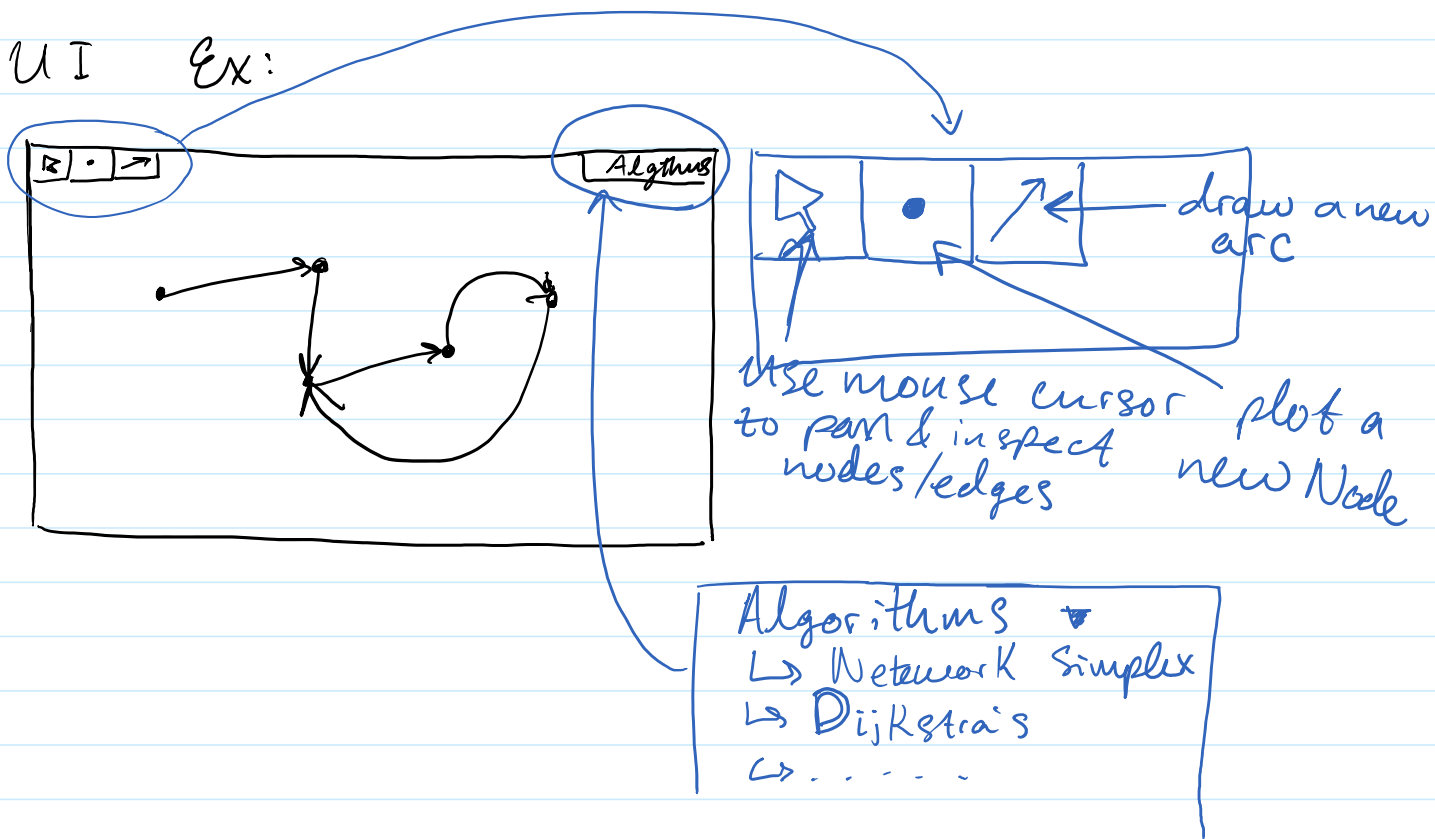 UI Ex:
Algthms
draw a new
arc
Use mouse cursor
to pan & inspect
nodes/edges
plot a
new Node
Algorithms
↳ Network Simplex
↳ Dijkstra's
↳ . . . . .